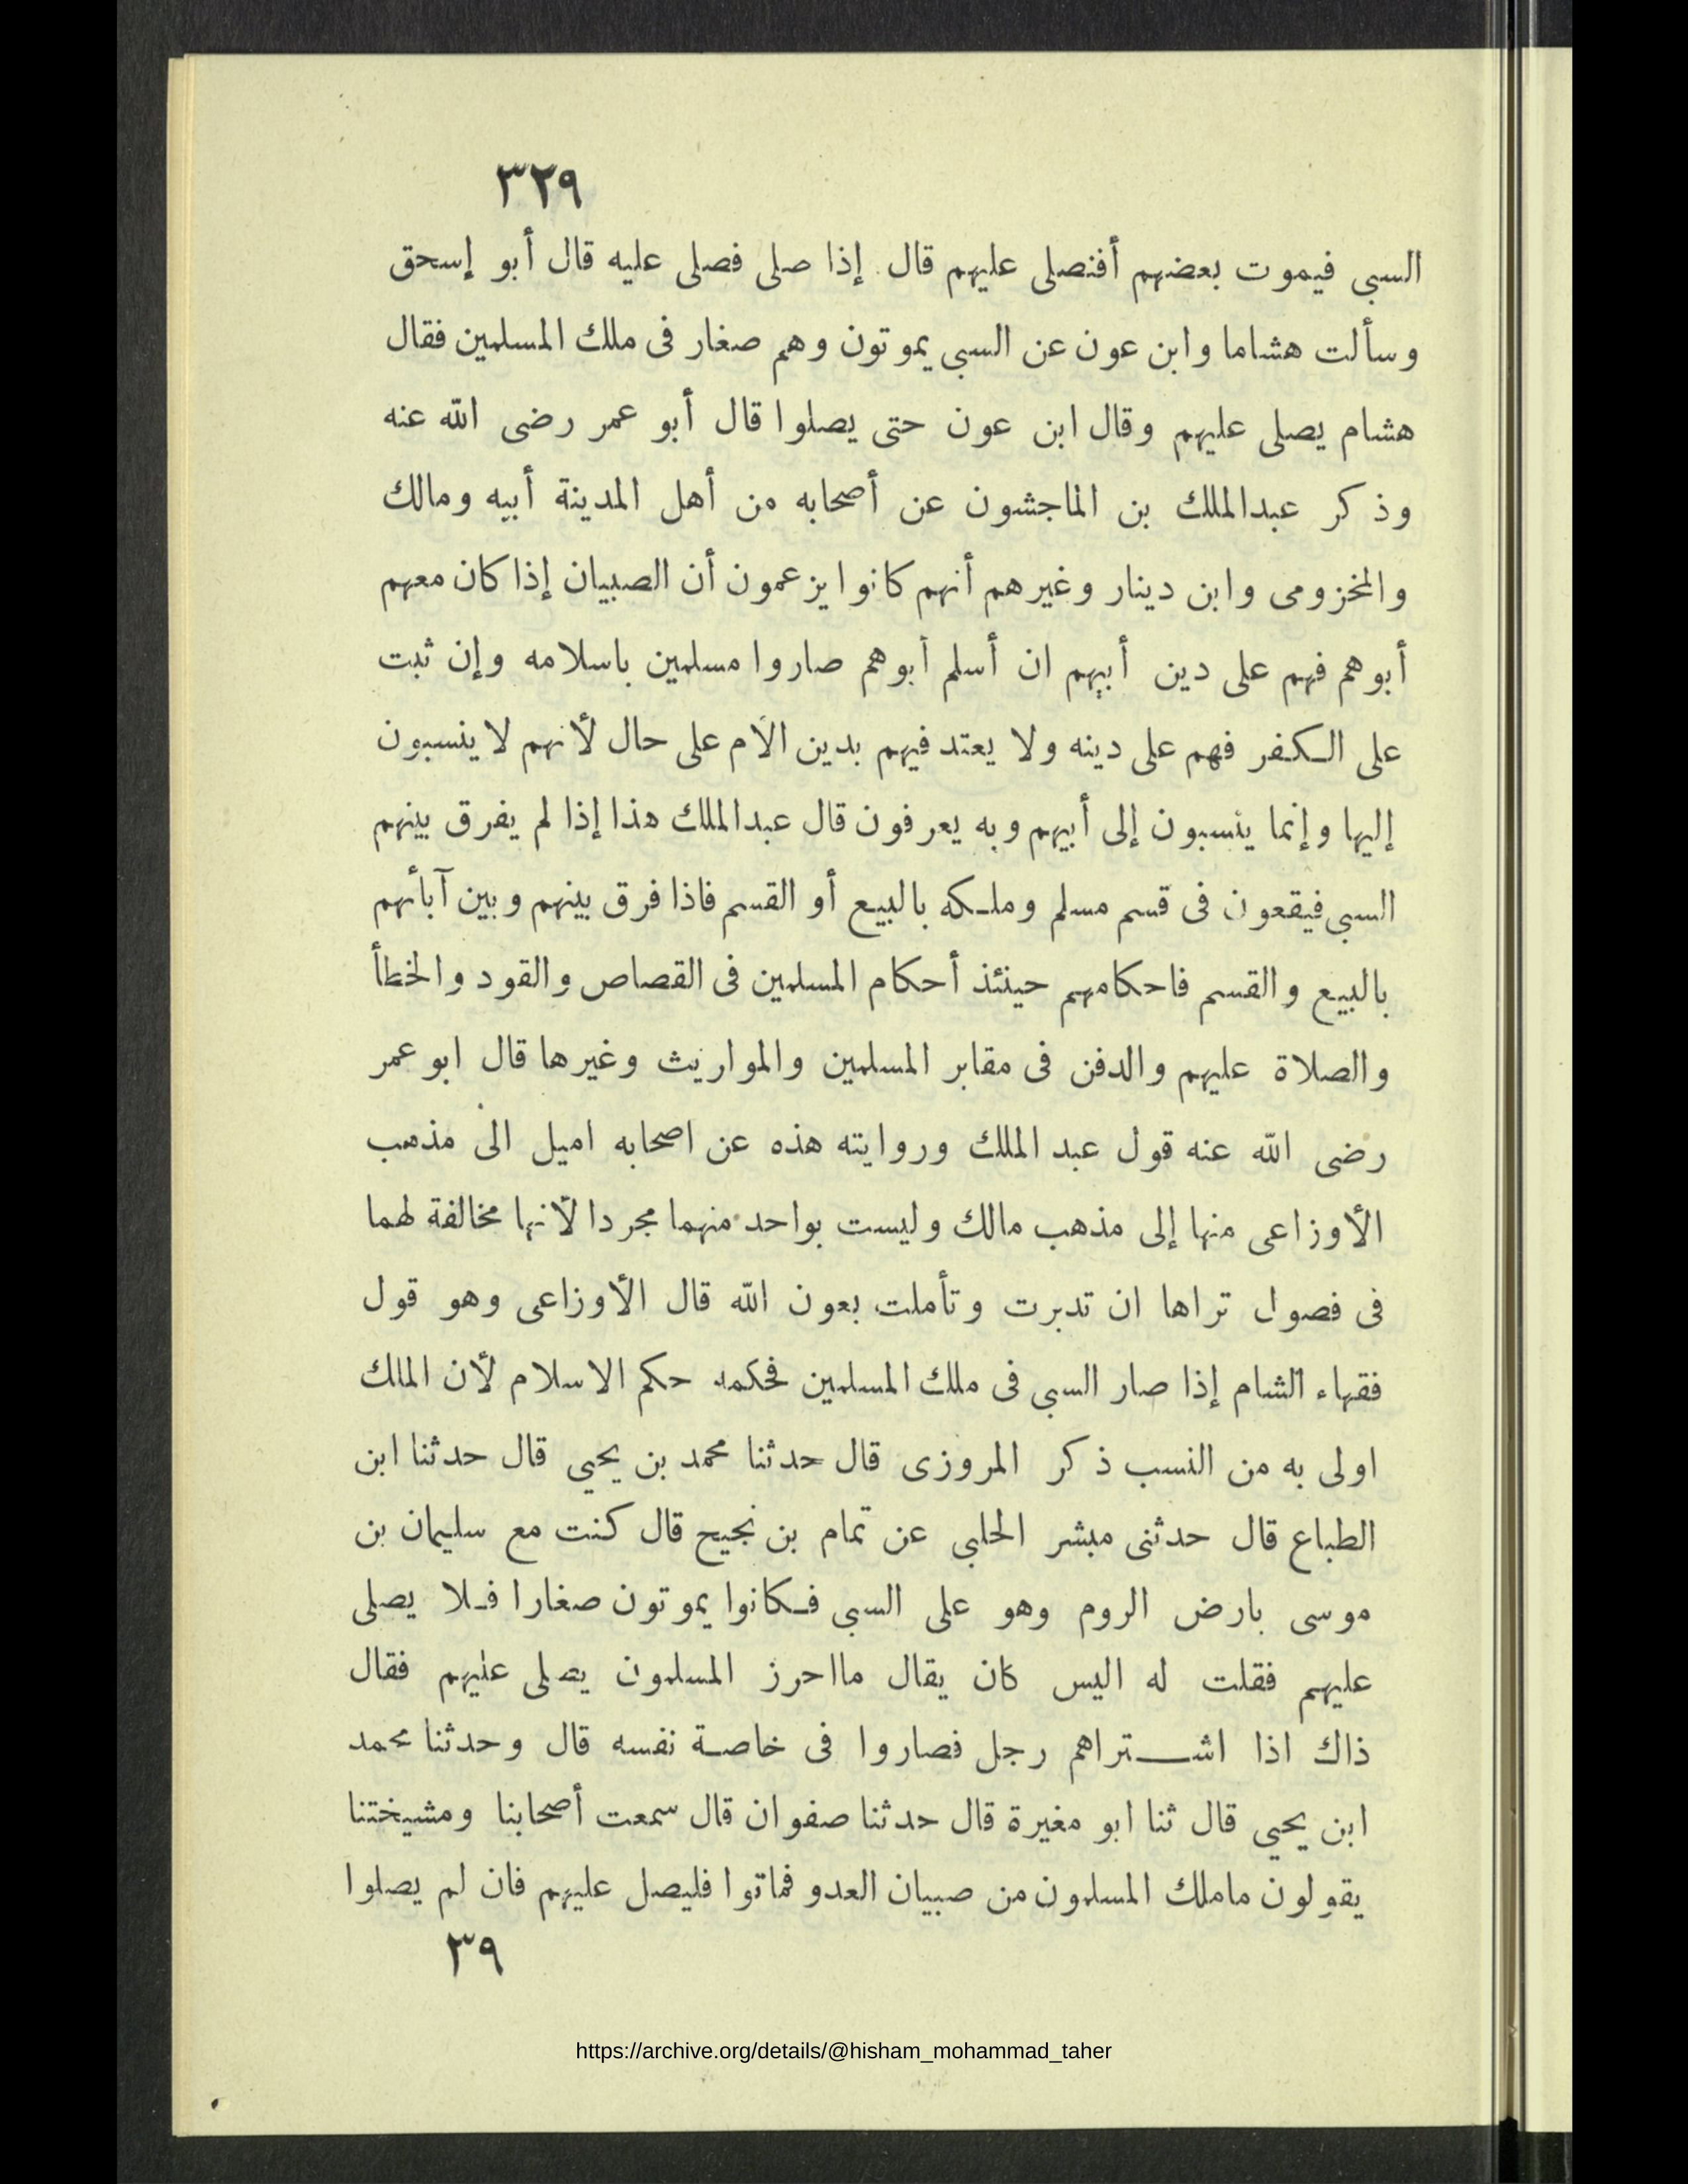 ٣٢٩
السبى فيموت بعضهم أفنصلى عليهم قال إذا صلى فصلى عليه قال أبو إسحق
وسألت هشاما وابن عون عن السبى يموتون وهم صغار فى ملك المسلمين فقال
هشام يصلى عليهم وقال ابن عون حتى يصلوا قال أبو عمر رضى الله عنه
وذكر عبدالملك بن الماجشون عن أصحابه من أهل المدينة أبيه ومالك
والمخزومى وابن دينار وغيرهم أنهم كانوا يزعمون أن الصبيان إذا كان معهم
أبوهم فهم على دين أبيهم ان أسلم أبوهم صاروا مسلمين باسلامه وإن ثبت
على الكفر فهم على دينه ولا يعتد فيهم بدين الأم على حال لأنهم لا ينسبون
إليها وإنما ينسبون إلى أبيهم وبه يعرفون قال عبدالملك هذا إذا لم يفرق بينهم
السبى فيقعون فى قسم مسلم وملكه بالبيع أو القسم فاذا فرق بينهم وبين آبائهم
بالبيع والقسم فاحكامهم حينئذ أحكام المسلمين فى القصاص والقود والخطأ
والصلاة عليهم والدفن فى مقابر المسلمين والمواريث وغيرها قال ابو عمر
رضى الله عنه قول عبد الملك وروايته هذه عن اصحابه اميل الى مذهب
الأوزاعى منها إلى مذهب مالك وليست بواحد منهما مجردا لأنها مخالفة لهما
فى فصول تراها ان تدبرت وتأملت بعون الله قال الأوزاعى وهو قول
فقهاء الشام إذا صار السبى فى ملك المسلمين فحكمه حكم الاسلام لأن الملك
اولى به من النسب ذكر المروزى قال حدثنا محمد بن يحيى قال حدثنا ابن
الطباع قال حدثنى مبشر الحلبى عن تمام بن نجيح قال كنت مع سليمان بن
موسى بارض الروم وهو على السبى فكانوا يموتون صغارا فلا يصلى
عليهم فقلت له اليس كان يقال مااحرز المسلمون يصلى عليهم فقال
ذاك اذا اشتراهم رجل فصاروا فى خاصة نفسه قال وحدثنا محمد
ابن يحيى قال ثنا ابو مغيرة قال حدثنا صفوان قال سمعت أصحابنا ومشيختنا
يقولون ماملك المسلمون من صبيان العدو فماتوا فليصل عليهم فان لم يصلوا
٣٩
https://archive.org/details/@hisham_mohammad_taher